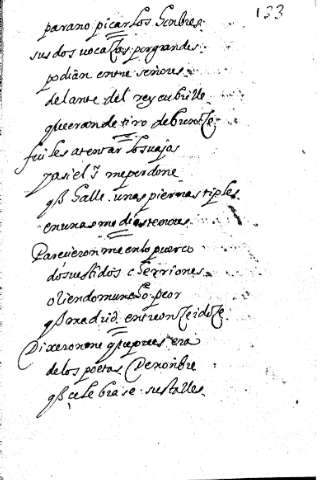 133
para no picar los hombres
sus dos vocaças por grandes
podian entre señores
delante del rey cubrille
que eran de tiro de bronce
fuiles atentar los vajos
y asi el me perdone
q̃ halle unas piernas tiples
en unas medias tenores
Parecieronme en lo puerco
dos vestidos
oliendo mucho peor
q̃ madrid entre onze i doze
Dixeronme que pues era
de los poetas de nonbre
q̃ celebrase sus talles